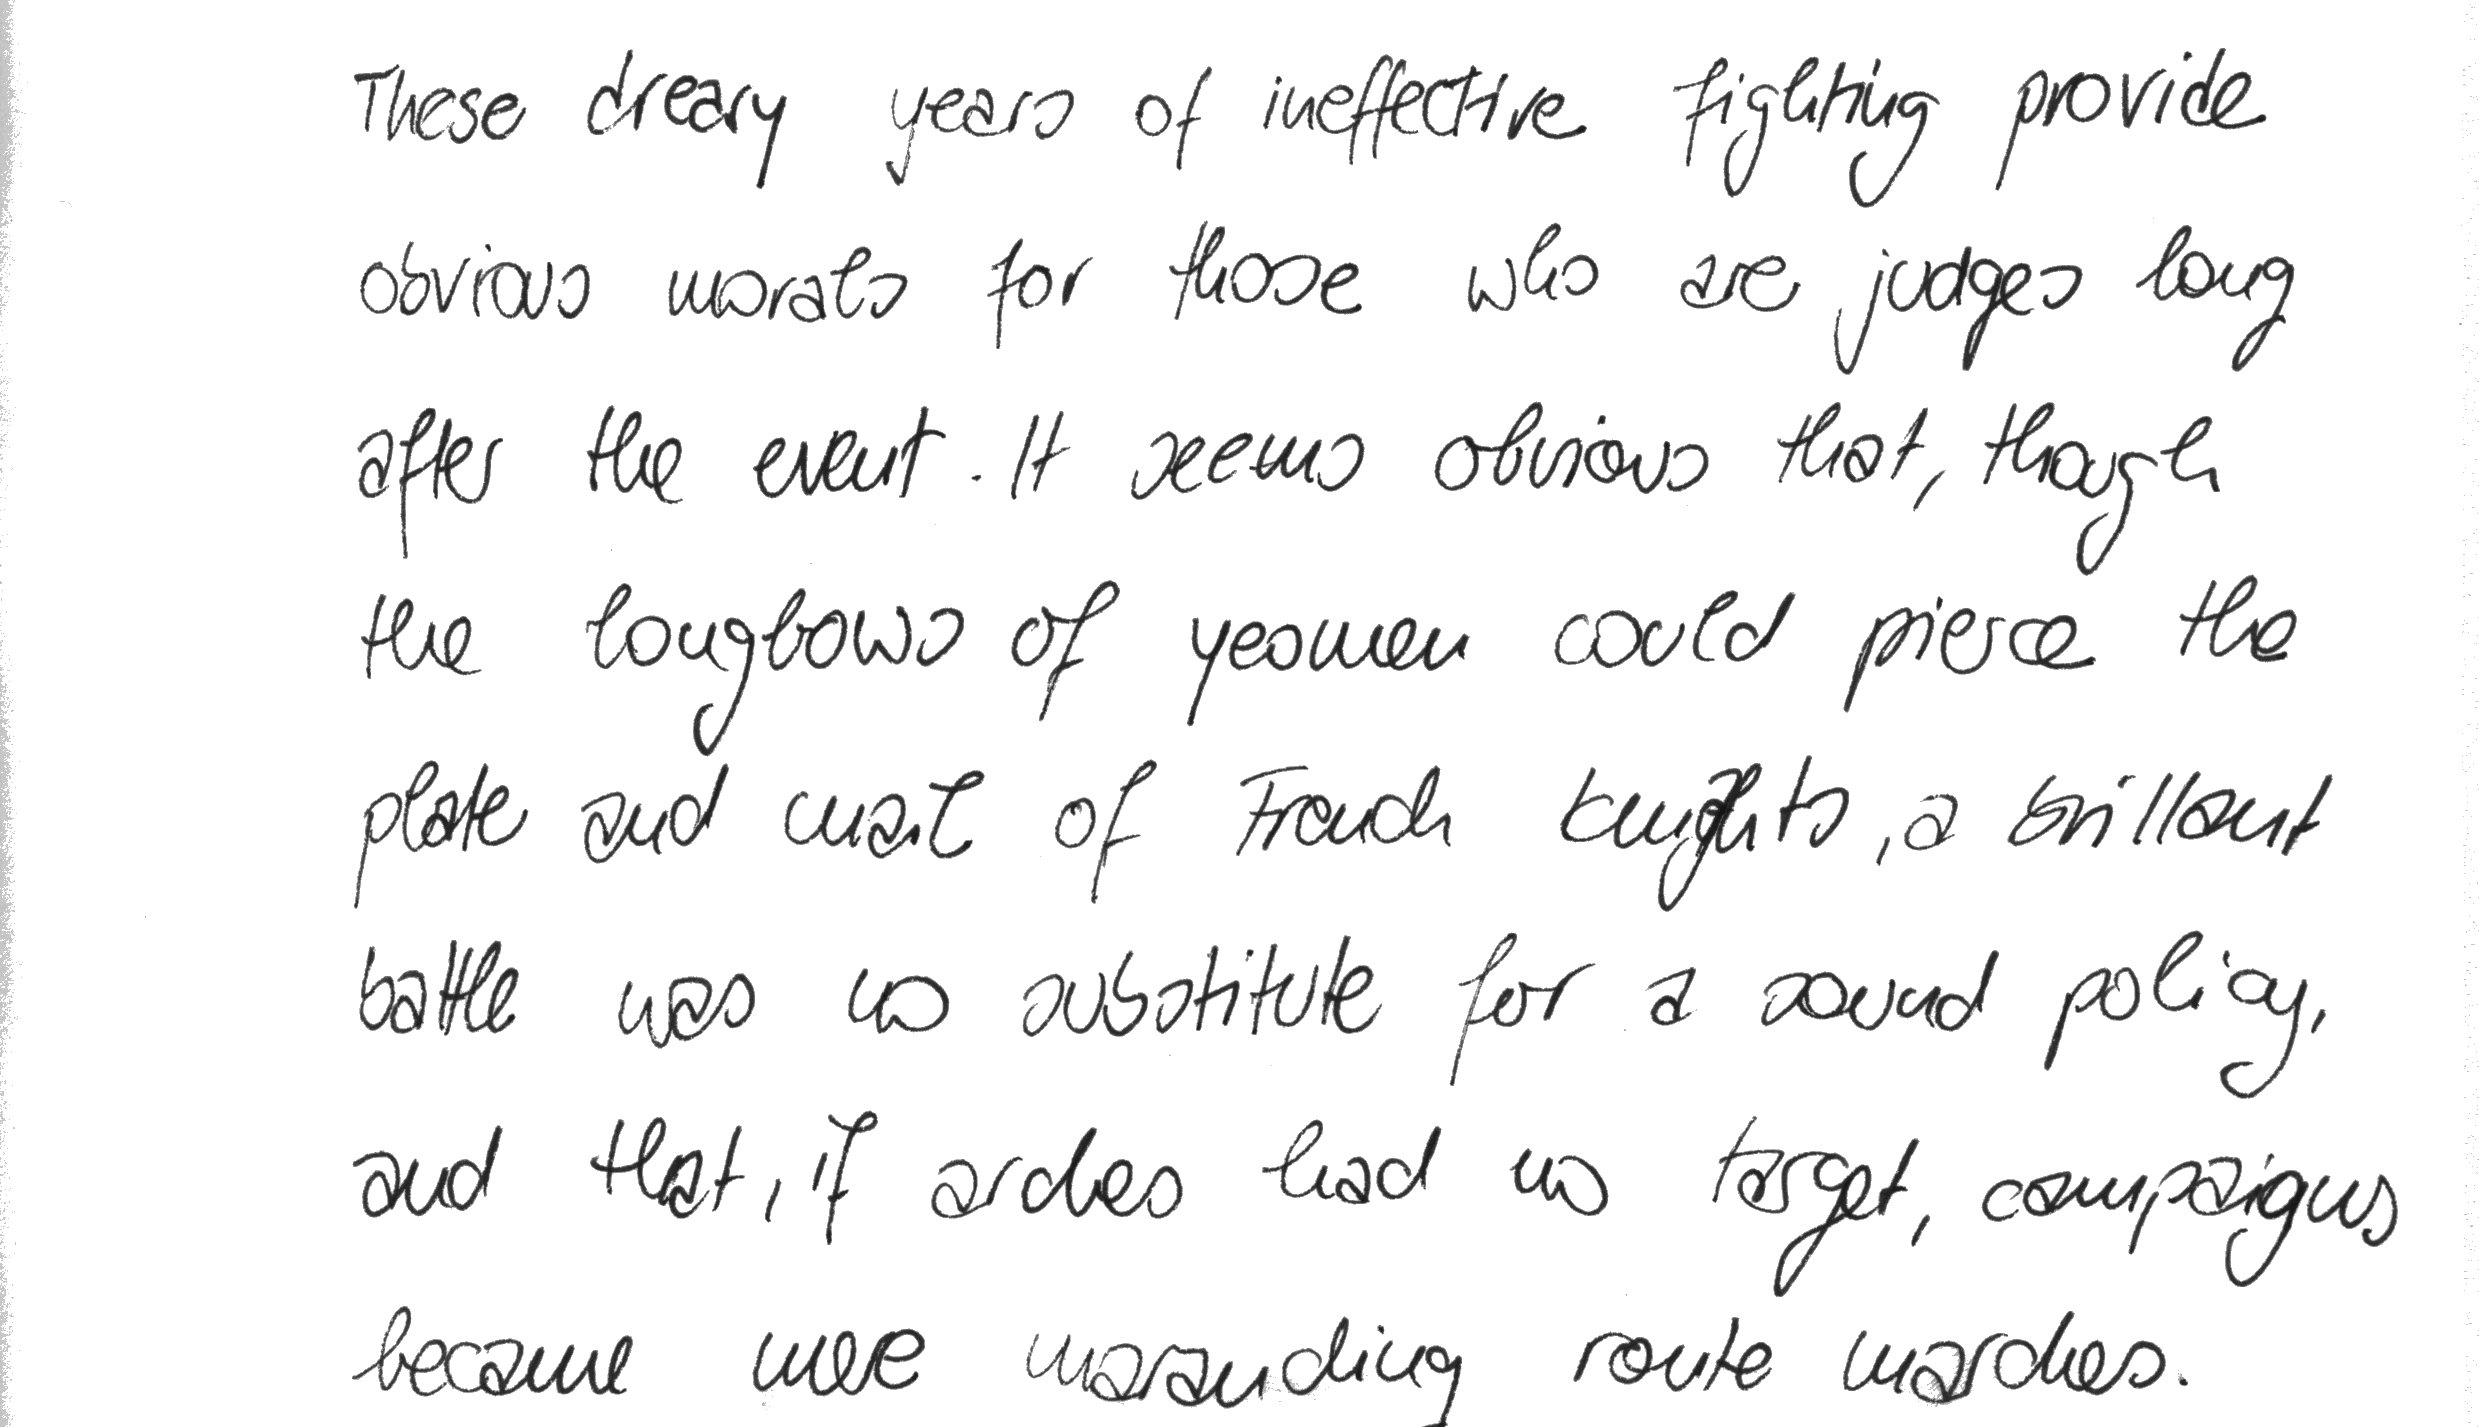 These dreary years of ineffective fighting provide
obvious morals for those who are judges long
after the event. It seems obvious that, though
the longbows of yeomen could pierce the
plate and mail of French knights, a brillant
battle was no substitute for a sound policy,
and that, if arches had no target, campaigns
became mere marauding route marches.